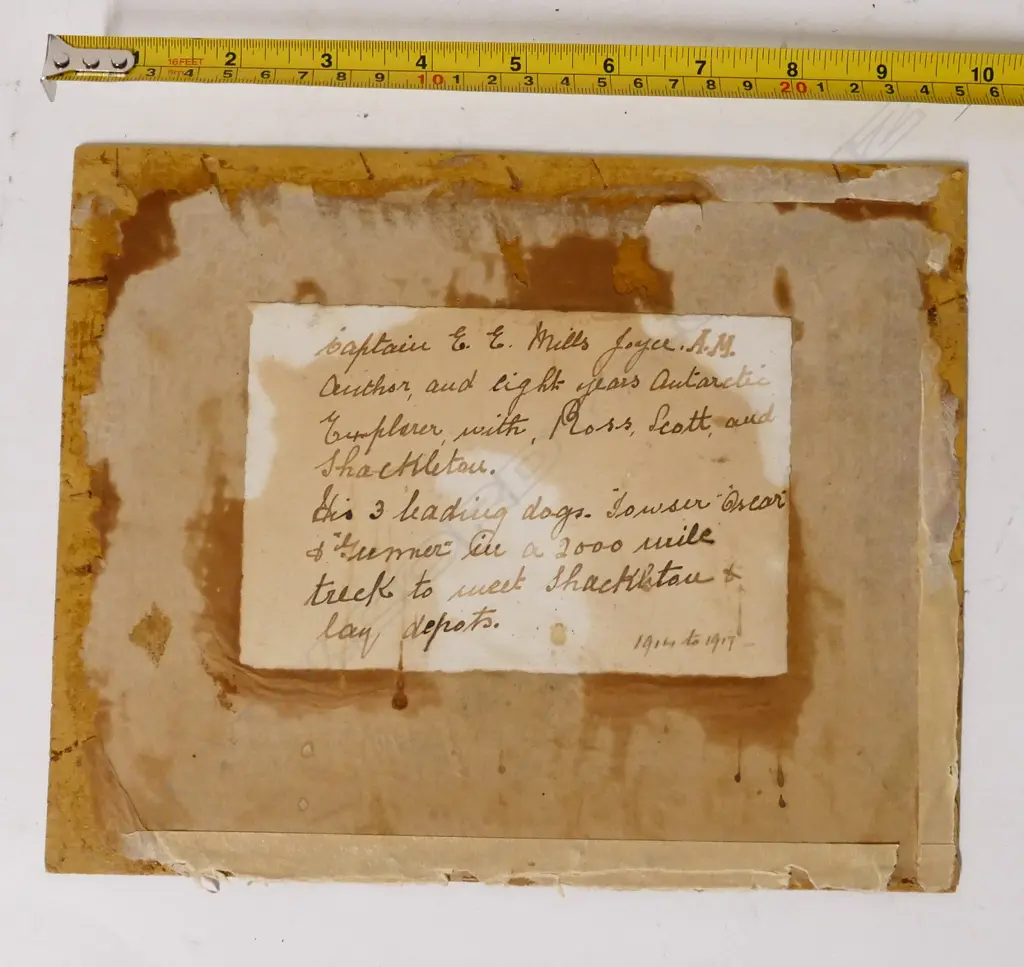 2 3 4 5 6 7 8 9 10
16 FEET
3 4 5 6 7 8 9 10 1 2 3 4 5 6 7 8 9 20 1 2 3 4 5 6
Captain E. E. Mills Joyce. A.M.
Author, and eight years Antarctic
Explorer, with, Ross, Scott, and
Shackleton.
His 3 leading dogs. "Towser" "Oscar"
& "Gunner" in a 2000 mile
treck to meet Shackleton &
lay depots.
1914 to 1917 -